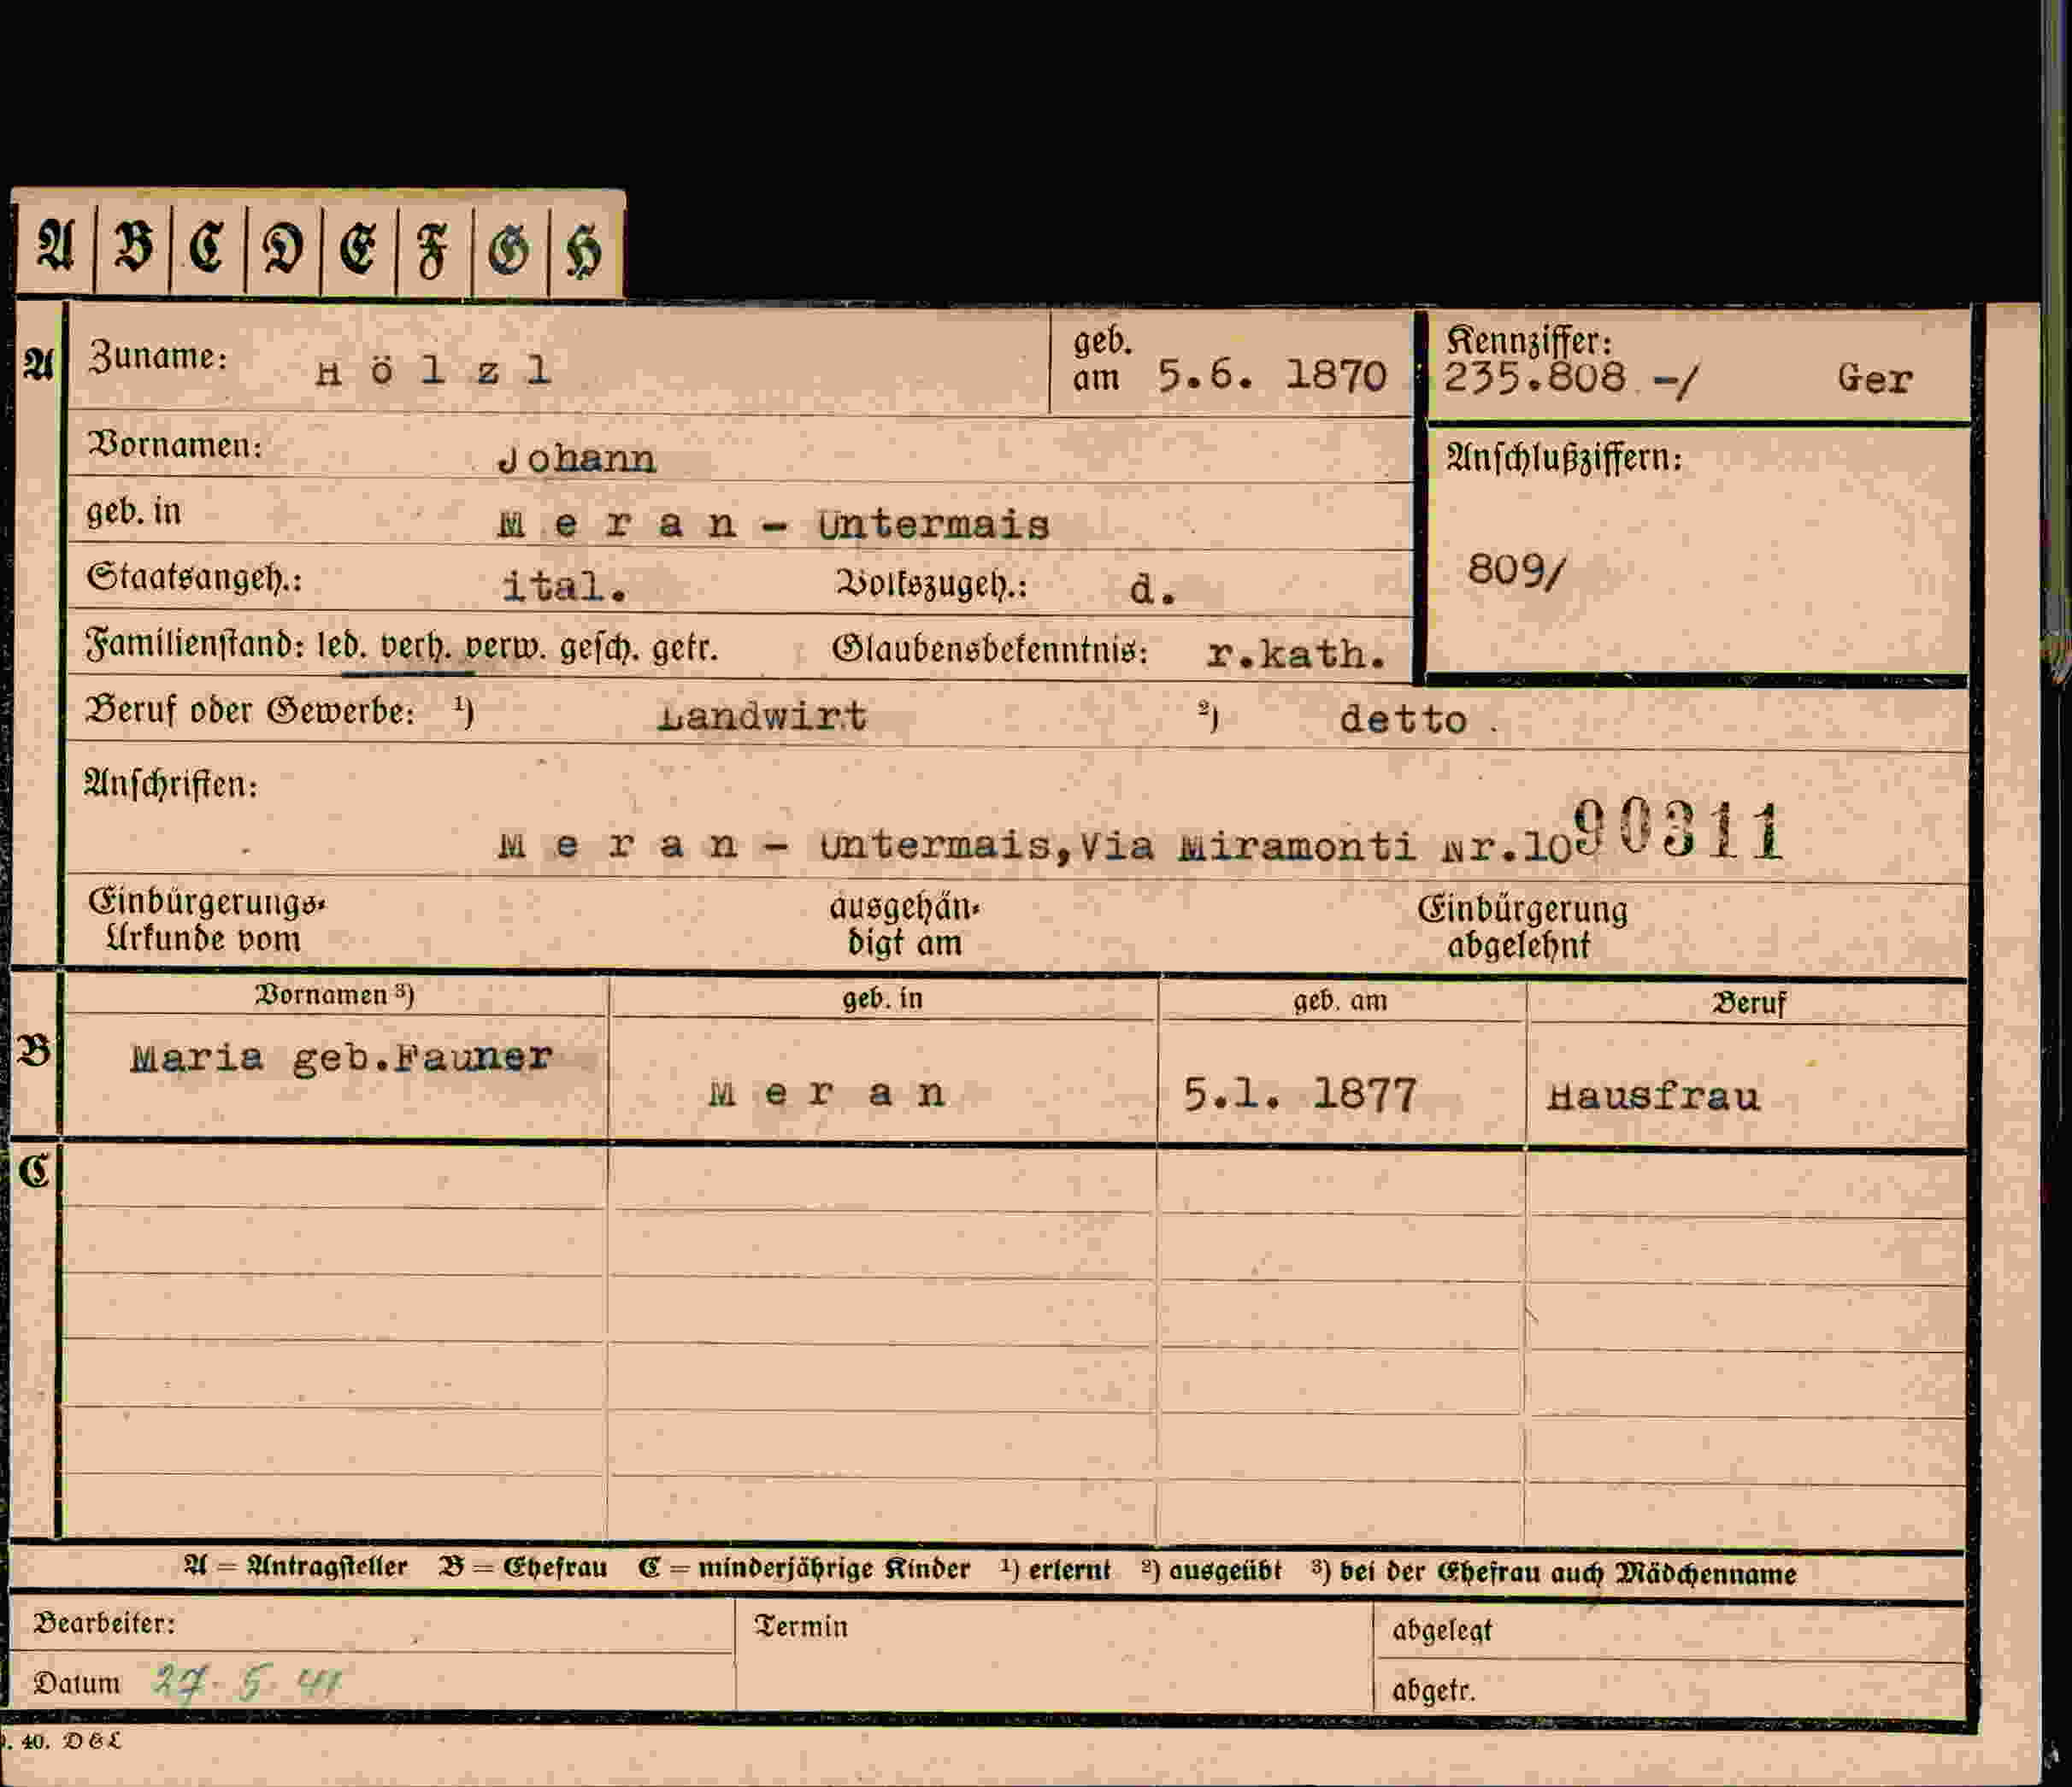 A B C D E F G H
A Zuname: Hölzl geb. am 5.6. 1870 Kennziffer: 235.808 -/ Ger
Vornamen: Johann Anschlußziffern:
geb. in Meran - Untermais
809/
Staatsangeh.: ital. Volkszugeh.: d.
Familienstand: led. verh. verw. gesch. getr. Glaubensbekenntnis: r.kath.
Beruf oder Gewerbe: 1) Landwirt 2) detto .
Anschriften:
Meran - Untermais,Via Miramonti Nr.10 90311
Einbürgerungs-Urkunde vom ausgehän-digt am Einbürgerung abgelehnt
Vornamen 3) geb. in geb. am Beruf
B Maria geb.Fauner Meran 5.1. 1877 Hausfrau
C
A = Antragsteller B = Ehefrau C = minderjährige Kinder 1) erlernt 2) ausgeübt 3) bei der Ehefrau auch Mädchenname
Bearbeiter: Termin abgelegt
Datum 27. 5. 41 abgetr.
. 40. D&L